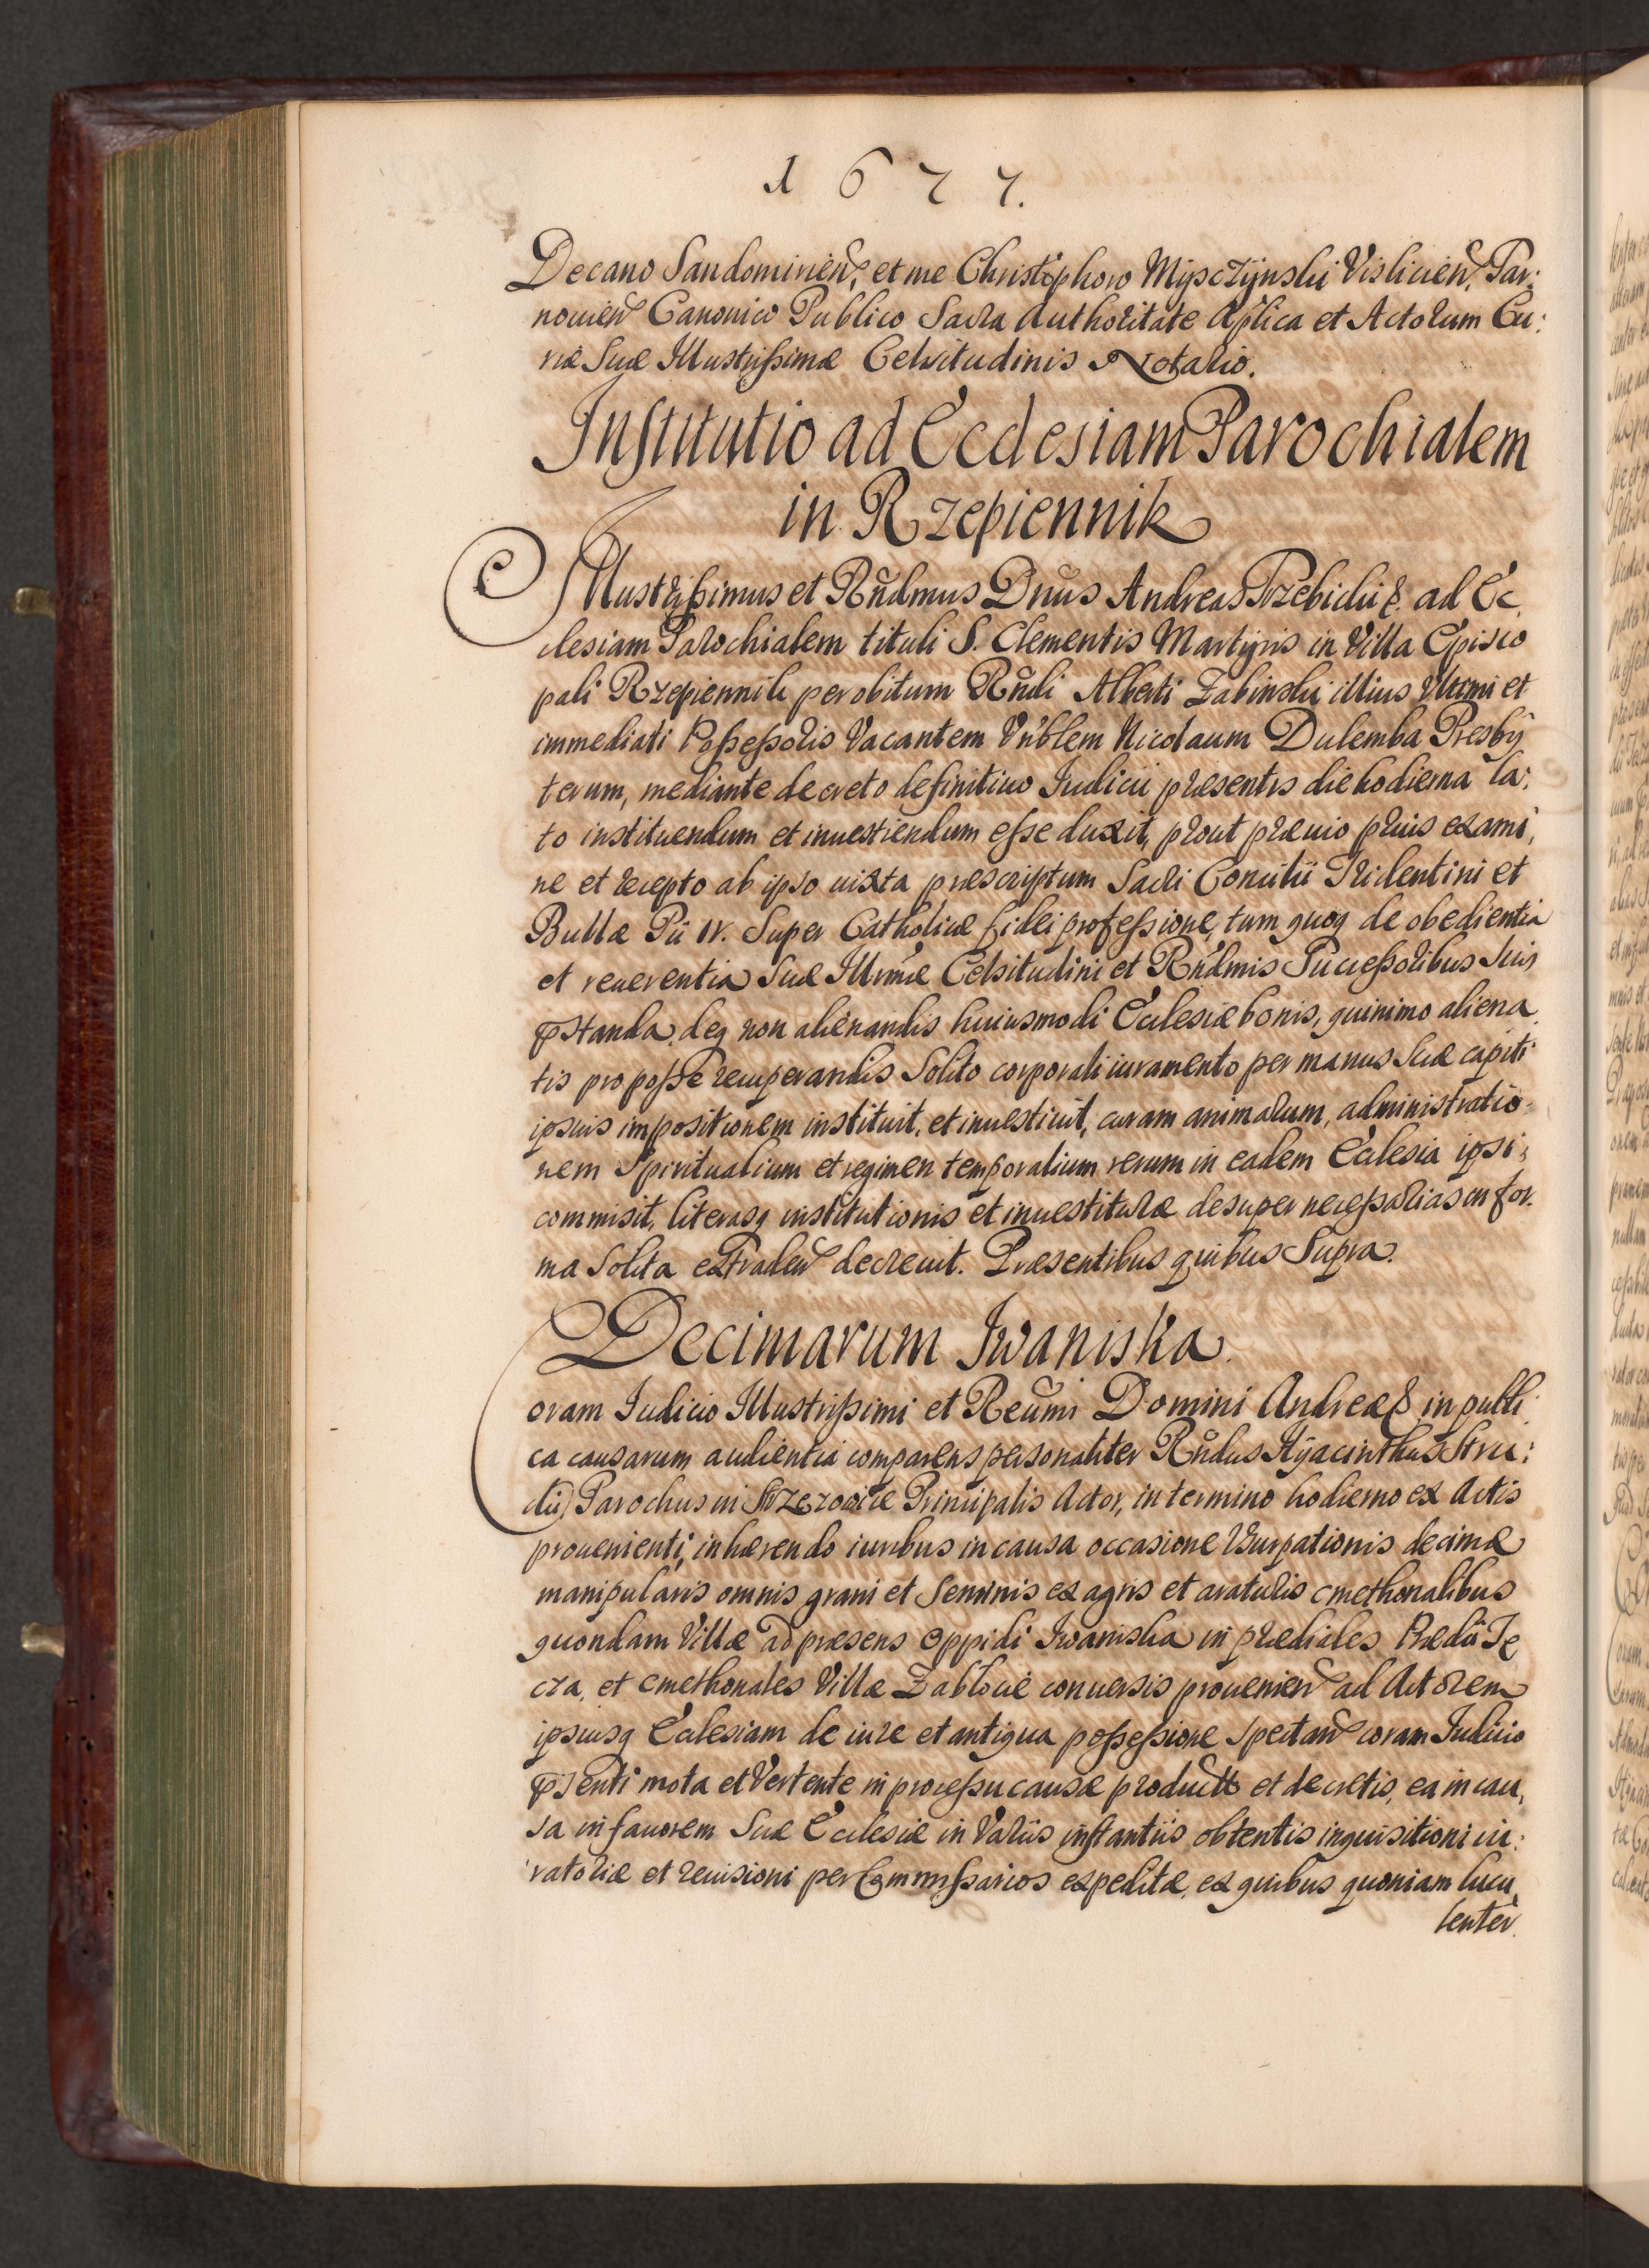 1677.
Decano Sandomirien, et me Christophoro Mysczynski Vislicien, Tar:
nouien Canonico Publico Sacra Authoritate Aplica et Actorum Cu:
riæ Suæ Illustrissimæ Celsitudinis Notario.
Institutio ad Ecclesiam Parochialem
in Rzepiennik
Illustrissimus et Rndmus Dnus Andreas Trzebicki &. ad Ec,
clesiam Parochialem tituli S. Clementis Martyris in Villa Episco
pali Rzepiennik per obitum Rndi Alberti Zabinski illius Vltimi et
immediati Possessoris Vacantem Vnblem Nicolaum Dulemba Presby
terum, mediante decreto definitiuo Iudicii præsentis die hodierna la:
to instituendum et inuestiendum esse duxit, prout præuio prius exami,
ne et recepto ab ipso iuxta præscriptum Sacri Concilii Tridentini et
Bullæ Pii IV. Super Catholicæ fidei professione, tum quoq de obedientia
et reuerentia Suæ Illmæ Celsitudini et Rndmis Successoribus Suis
pstanda, deq non alienandis huiusmodi Ecclesiæ bonis, quinimo aliena,
tis pro posse recuperandis Solito corporali iuramento per manus Suæ capiti
ipsius impositionem instituit, et inuestiuit, curam animarum, administratio:
nem Spiritualium et regimen temporalium rerum in eadem Ecclesia ipsi
commisit, literasq institutionis et inuestituræ desuper necessarias in for:
ma Solita extraden decreuit. Præsentibus quibus Supra.
Decimarum Iwaniska.
Coram Iudicio Illustrissimi et Reumi Domini Andreæ & in publi
ca causarum audientia comparens personaliter Rndus Hyacinthus
Parochus in Principalis Actor, in termino hodierno ex Actis
prouenienti, inhærendo iuribus in causa occasione Vsurpationis decimæ
manipularis omnis grani et Seminis ex agris et araturis cmethonalibus
quondam Villæ ad præsens Oppidi Iwaniska in prædiales Prædii Ie,
cza, et cmethonales Villæ Zablocie conuersis prouenien ad Actorem
ipsiusq Ecclesiam de iure et antiqua possessione Spectan coram Iudicio
psenti mota et Vertente in processu causæ productis et decretis, ea in cau,
sa in fauorem Suæ Ecclesiæ in Variis instantiis obtentis inquisitioni iu:
ratoriæ et reuisioni per Commissarios expeditæ, ex quibus quoniam lucu,
lenter